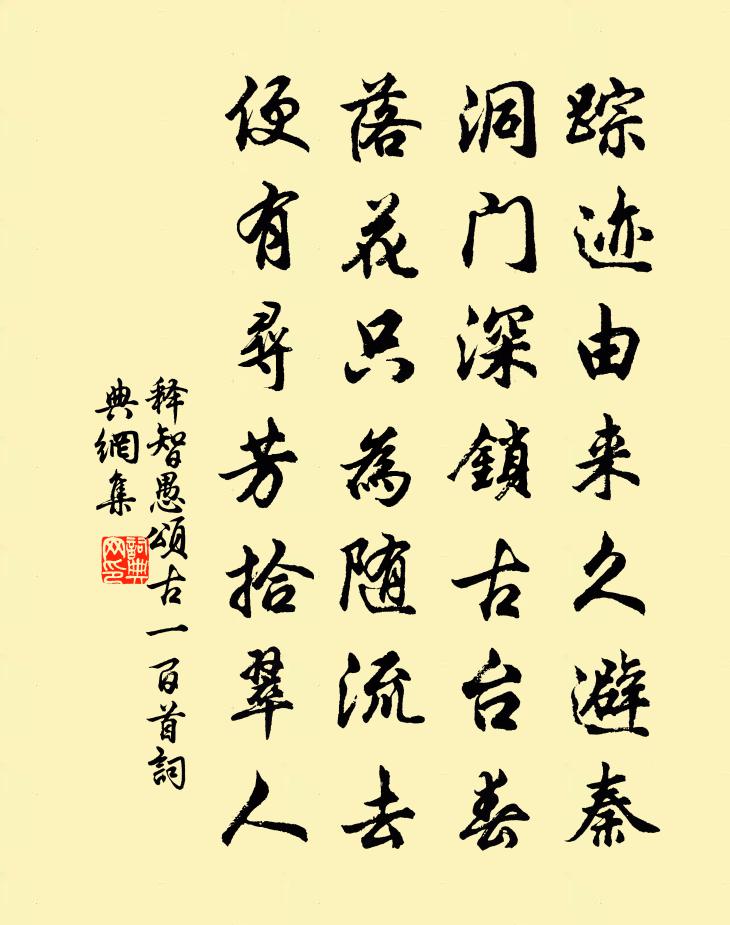 踪迹由来久避秦
洞门深鎖古台春
落花只為随流去
便有尋芳拾翠人
释智愚頌古一百首詞
典網集
詞典网印